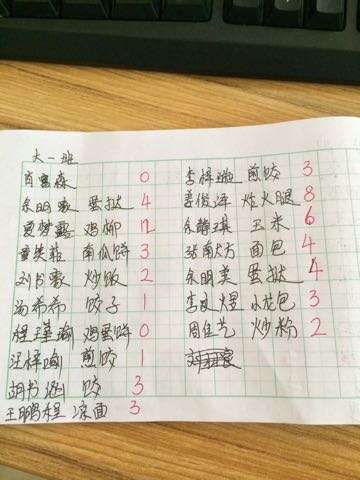 大一班
肖雪森 0
余明豪 蛋挞 4
夏梦露 鸡柳 12
童英菲 南瓜饼 3
刘书豪 炒饭 2
汤希希 饺子 1
程瑾瑜 鸡蛋饼 0
汪梓瑜 煎饺 1
胡书涵 饺 3
王鹏程 凉面 3
李梓璇 煎饺 3
姜俊泽 炸火腿 8
余静琪 玉米 6
张南方 面包 4
余明美 蛋挞 4
李文煜 小花包 3
周佳艺 炒粉 2